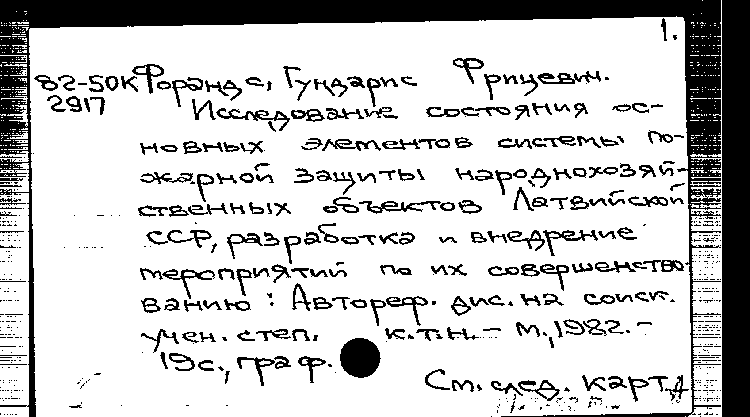 1.
82-50К Форандс, Гундарис Фрицевич.
2917 Исследование состояния ос-
новных элементов системы по-
жарной защиты народнохозяй-
ственных объектов Латвийской
ССР, разработка и внедрение
мероприятий по их совершенство-
ванию : Автореф. дис. на соиск.
учен. степ. к.т.н. - М., 1982. -
19с., граф.
См. след. карт.